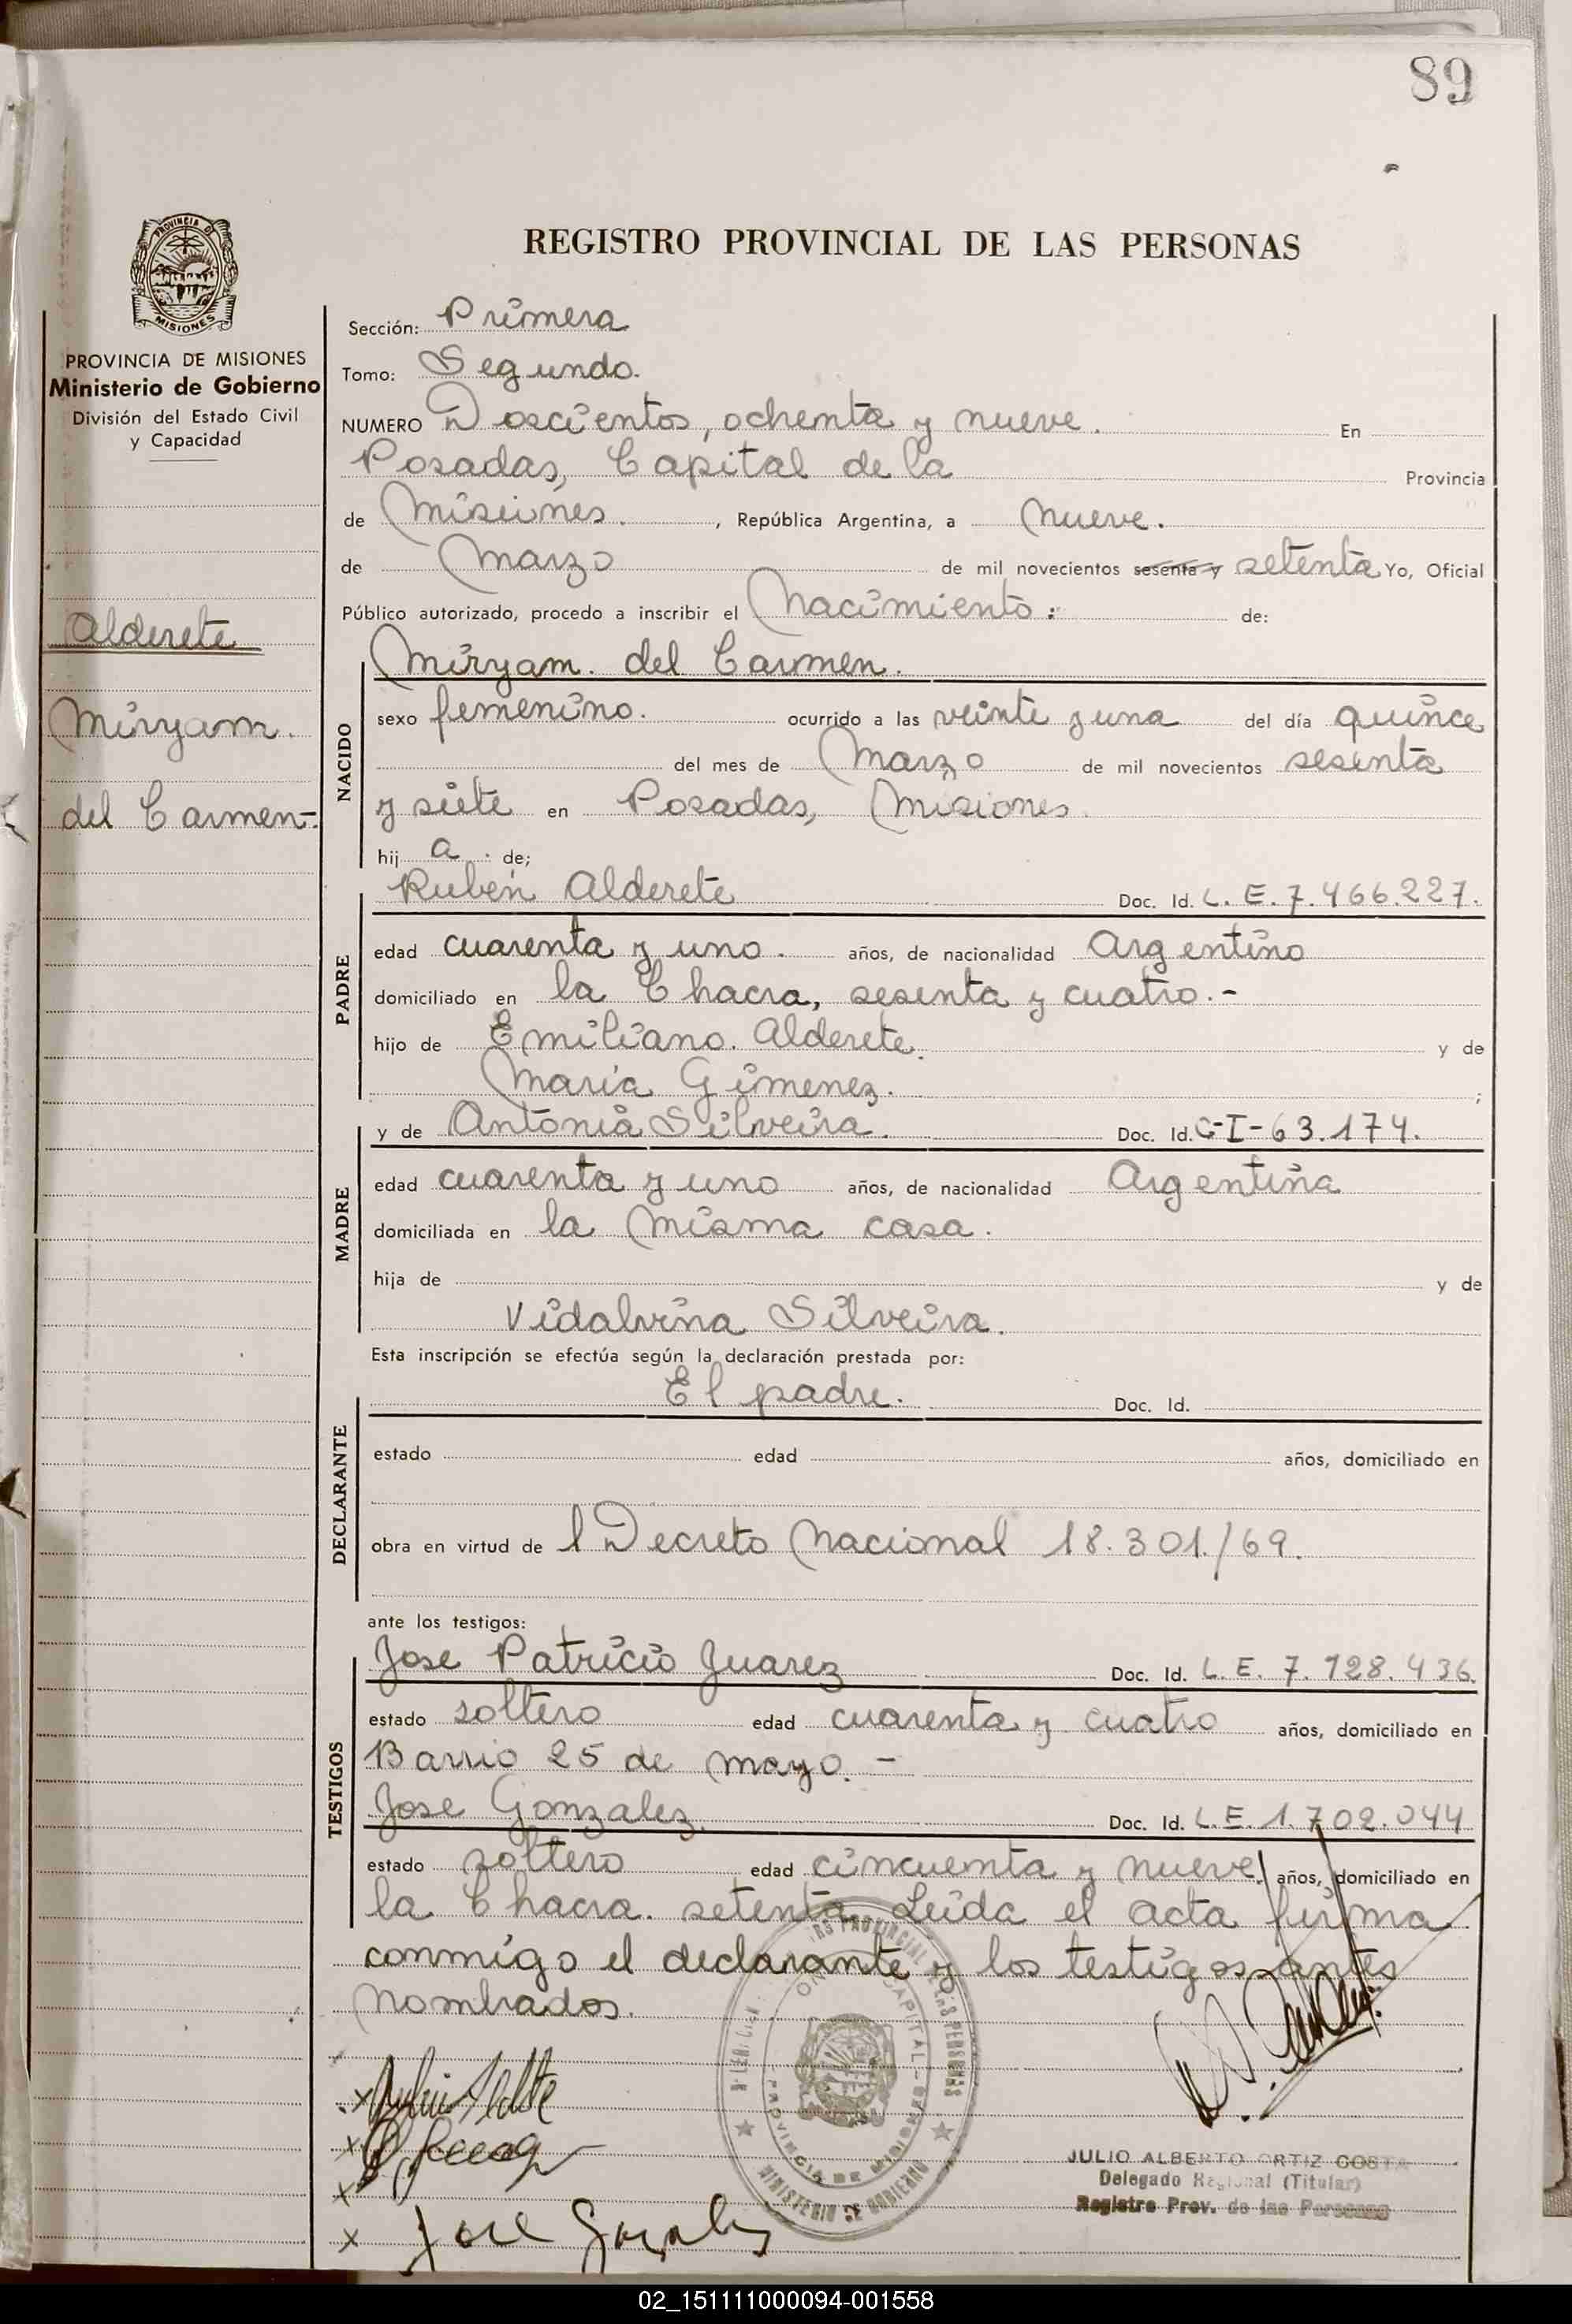 89
PROVINCIA DE
MISIONES
PROVINCIA DE MISIONES
Ministerio de Gobierno
División del Estado Civil
y Capacidad
Alderete
Miryam.
del Carmen-.
REGISTRO PROVINCIAL DE LAS PERSONAS
Sección: Primera
Tomo: Segundo.
NUMERO Doscientos, ochenta y nueve. En
Posadas, Capital de la Provincia
de Misiones. , República Argentina, a nueve.
de Marzo de mil novecientos sesenta y setenta Yo, Oficial
Público autorizado, procedo a inscribir el Nacimiento: de:
Miryam. del Carmen.
NACIDO
sexo femenino. ocurrido a las veinte y una del día quince
del mes de Marzo de mil novecientos sesenta
y siete en Posadas, Misiones.
hij a. de;
Rubén Alderete Doc. Id. L. E. 7.466.227.
PADRE
edad cuarenta y uno. años, de nacionalidad Argentino
domiciliado en la Chacra, sesenta y cuatro.-
hijo de Emiliano. Alderete. y de
María Gimenez. ;
y de Antonia Silveira. Doc. Id. C-I-63.174.
MADRE
edad cuarenta y uno años, de nacionalidad Argentina
domiciliada en la misma casa.
hija de y de
Vidalvina Silveira.
Esta inscripción se efectúa según la declaración prestada por:
El padre. Doc. Id.
DECLARANTE
estado edad años, domiciliado en
obra en virtud de l Decreto Nacional 18.301./69.
ante los testigos:
Jose Patricio Juarez Doc. Id. L. E. 7.128.436.
TESTIGOS
estado soltero edad cuarenta y cuatro años, domiciliado en
Barrio 25 de mayo. -
Jose Gonzalez. Doc. Id. L.E. 1.702.044
estado soltero edad cincuenta y nueve. años, domiciliado en
la Chacra. setenta. Leída el acta firma
conmigo el declarante y los testigos antes
nombrados.
x
x
x
x Jose Gonzalez
PROVINCIA DE MISIONES
MINISTERIO DE GOBIERNO
JULIO ALBERTO ORTIZ COSTA
Delegado Regional (Titular)
Registro Prov. de las Personas
02_151111000094-001558